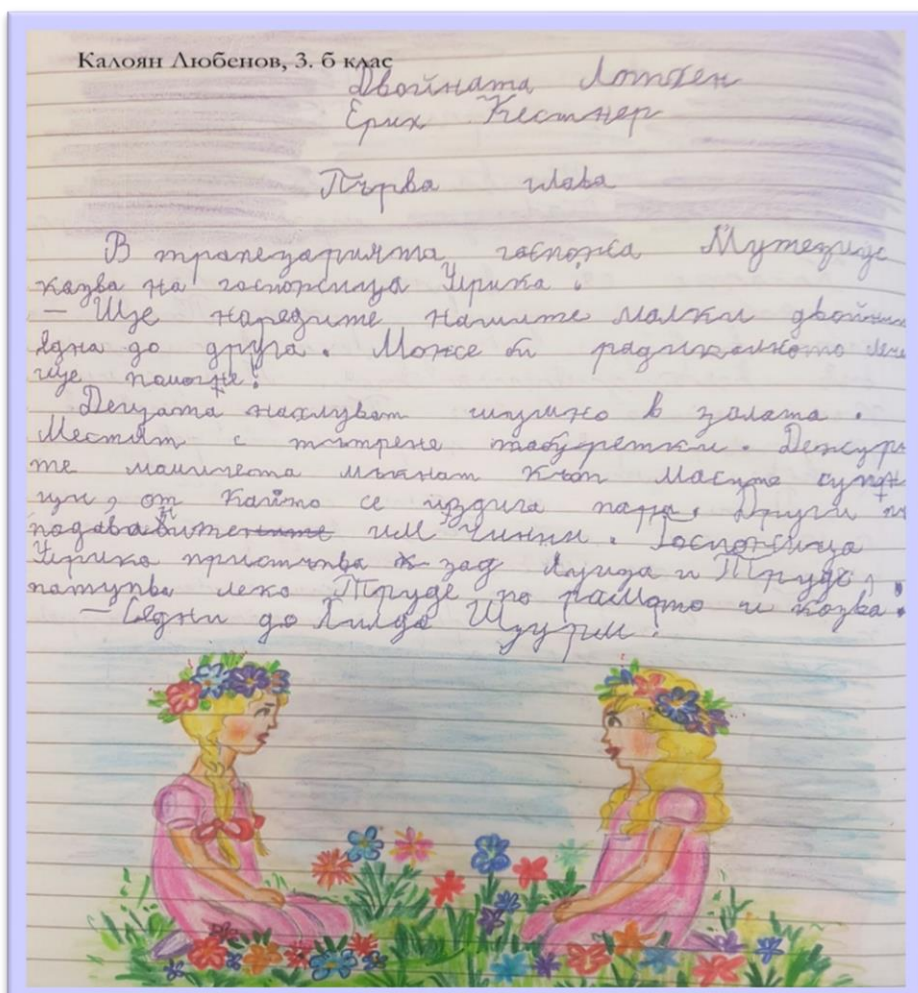 Калоян Любенов, 3. б клас
Двойната Лотхен
Ерих Кестнер
Първа глава
В трапезарията госпожа Мутезиус
казва на госпожица Улрика:
— Ще наредите нашите малки двойни
една до друга. Може би радикалното лече
ще помогне!
Децата нахлуват шумно в залата.
Местят с тътрене табуретки. Дежурн
те момичета мъкнат към масите супни
ци, от които се издига пара. Други
подава им чинии. Госпожица
Улрика пристъпва зад Луиза и Труде,
потупва леко Труде по рамото и казва:
— Седни до Хилде Щурм.